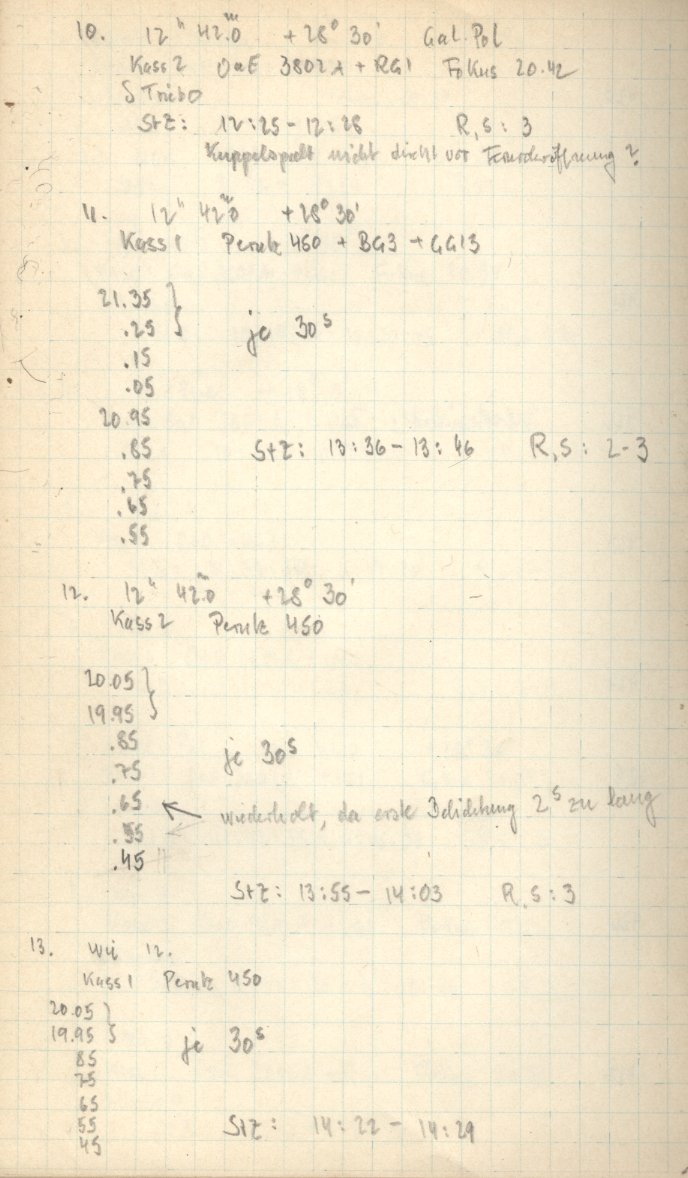 10. 12ʰ 42ᵐ.0 +28° 30' Gal. Pol
Kass 2 OaE 3802A + RG1 Fokus 20.42
StZ: 12:25 - 12:28 R,S: 3
Kuppelspalt nicht direkt vor Fernrohröffnung?
11. 12ʰ 42ᵐ.0 +28° 30'
Kass 1 Perutz 450 + BG3 + GG13
21.35 }
.25 } je 30ˢ
.15
.05
20.95
.85 StZ: 13:36 - 13:46 R,S: 2-3
.75
.65
.55
12. 12ʰ 42ᵐ.0 +28° 30'
Kass 2 Perutz 450
20.05 }
19.95 }
.85 je 30ˢ
.75
.65 ← wiederholt, da erste Belichtung 2ˢ zu lang
.55
.45
StZ: 13:55 - 14:03 R,S: 3
13. wie 12.
Kass 1 Perutz 450
20.05 }
19.95 } je 30ˢ
85
75
65
55 StZ: 14:22 - 14:29
45